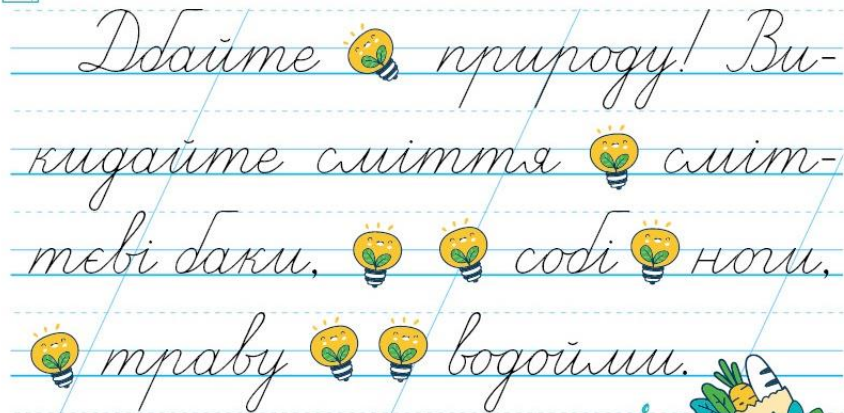 Дбайте природу! Ви-
кидайте сміття сміт-
тєві баки, собі ноги,
траву водойми.